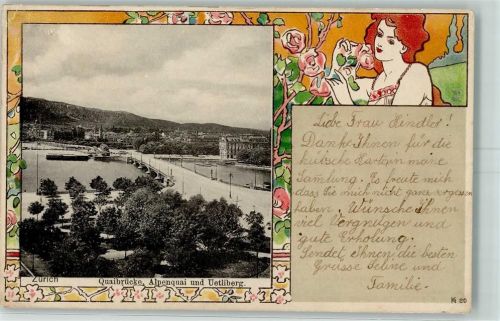 Liebe Frau Hindler!
Danke Ihnen für die
hübsche Karte in meine
Samlung. Es freute mich
dass Sie mich nicht ganz vergessen
haben. Wünsche Ihnen
viel Vergnügen und
gute Erholung.
Sendet Ihnen die besten
Grüsse und
Familie.
Zürich
Quaibrücke, Alpenquai und Uetliberg.
K 20